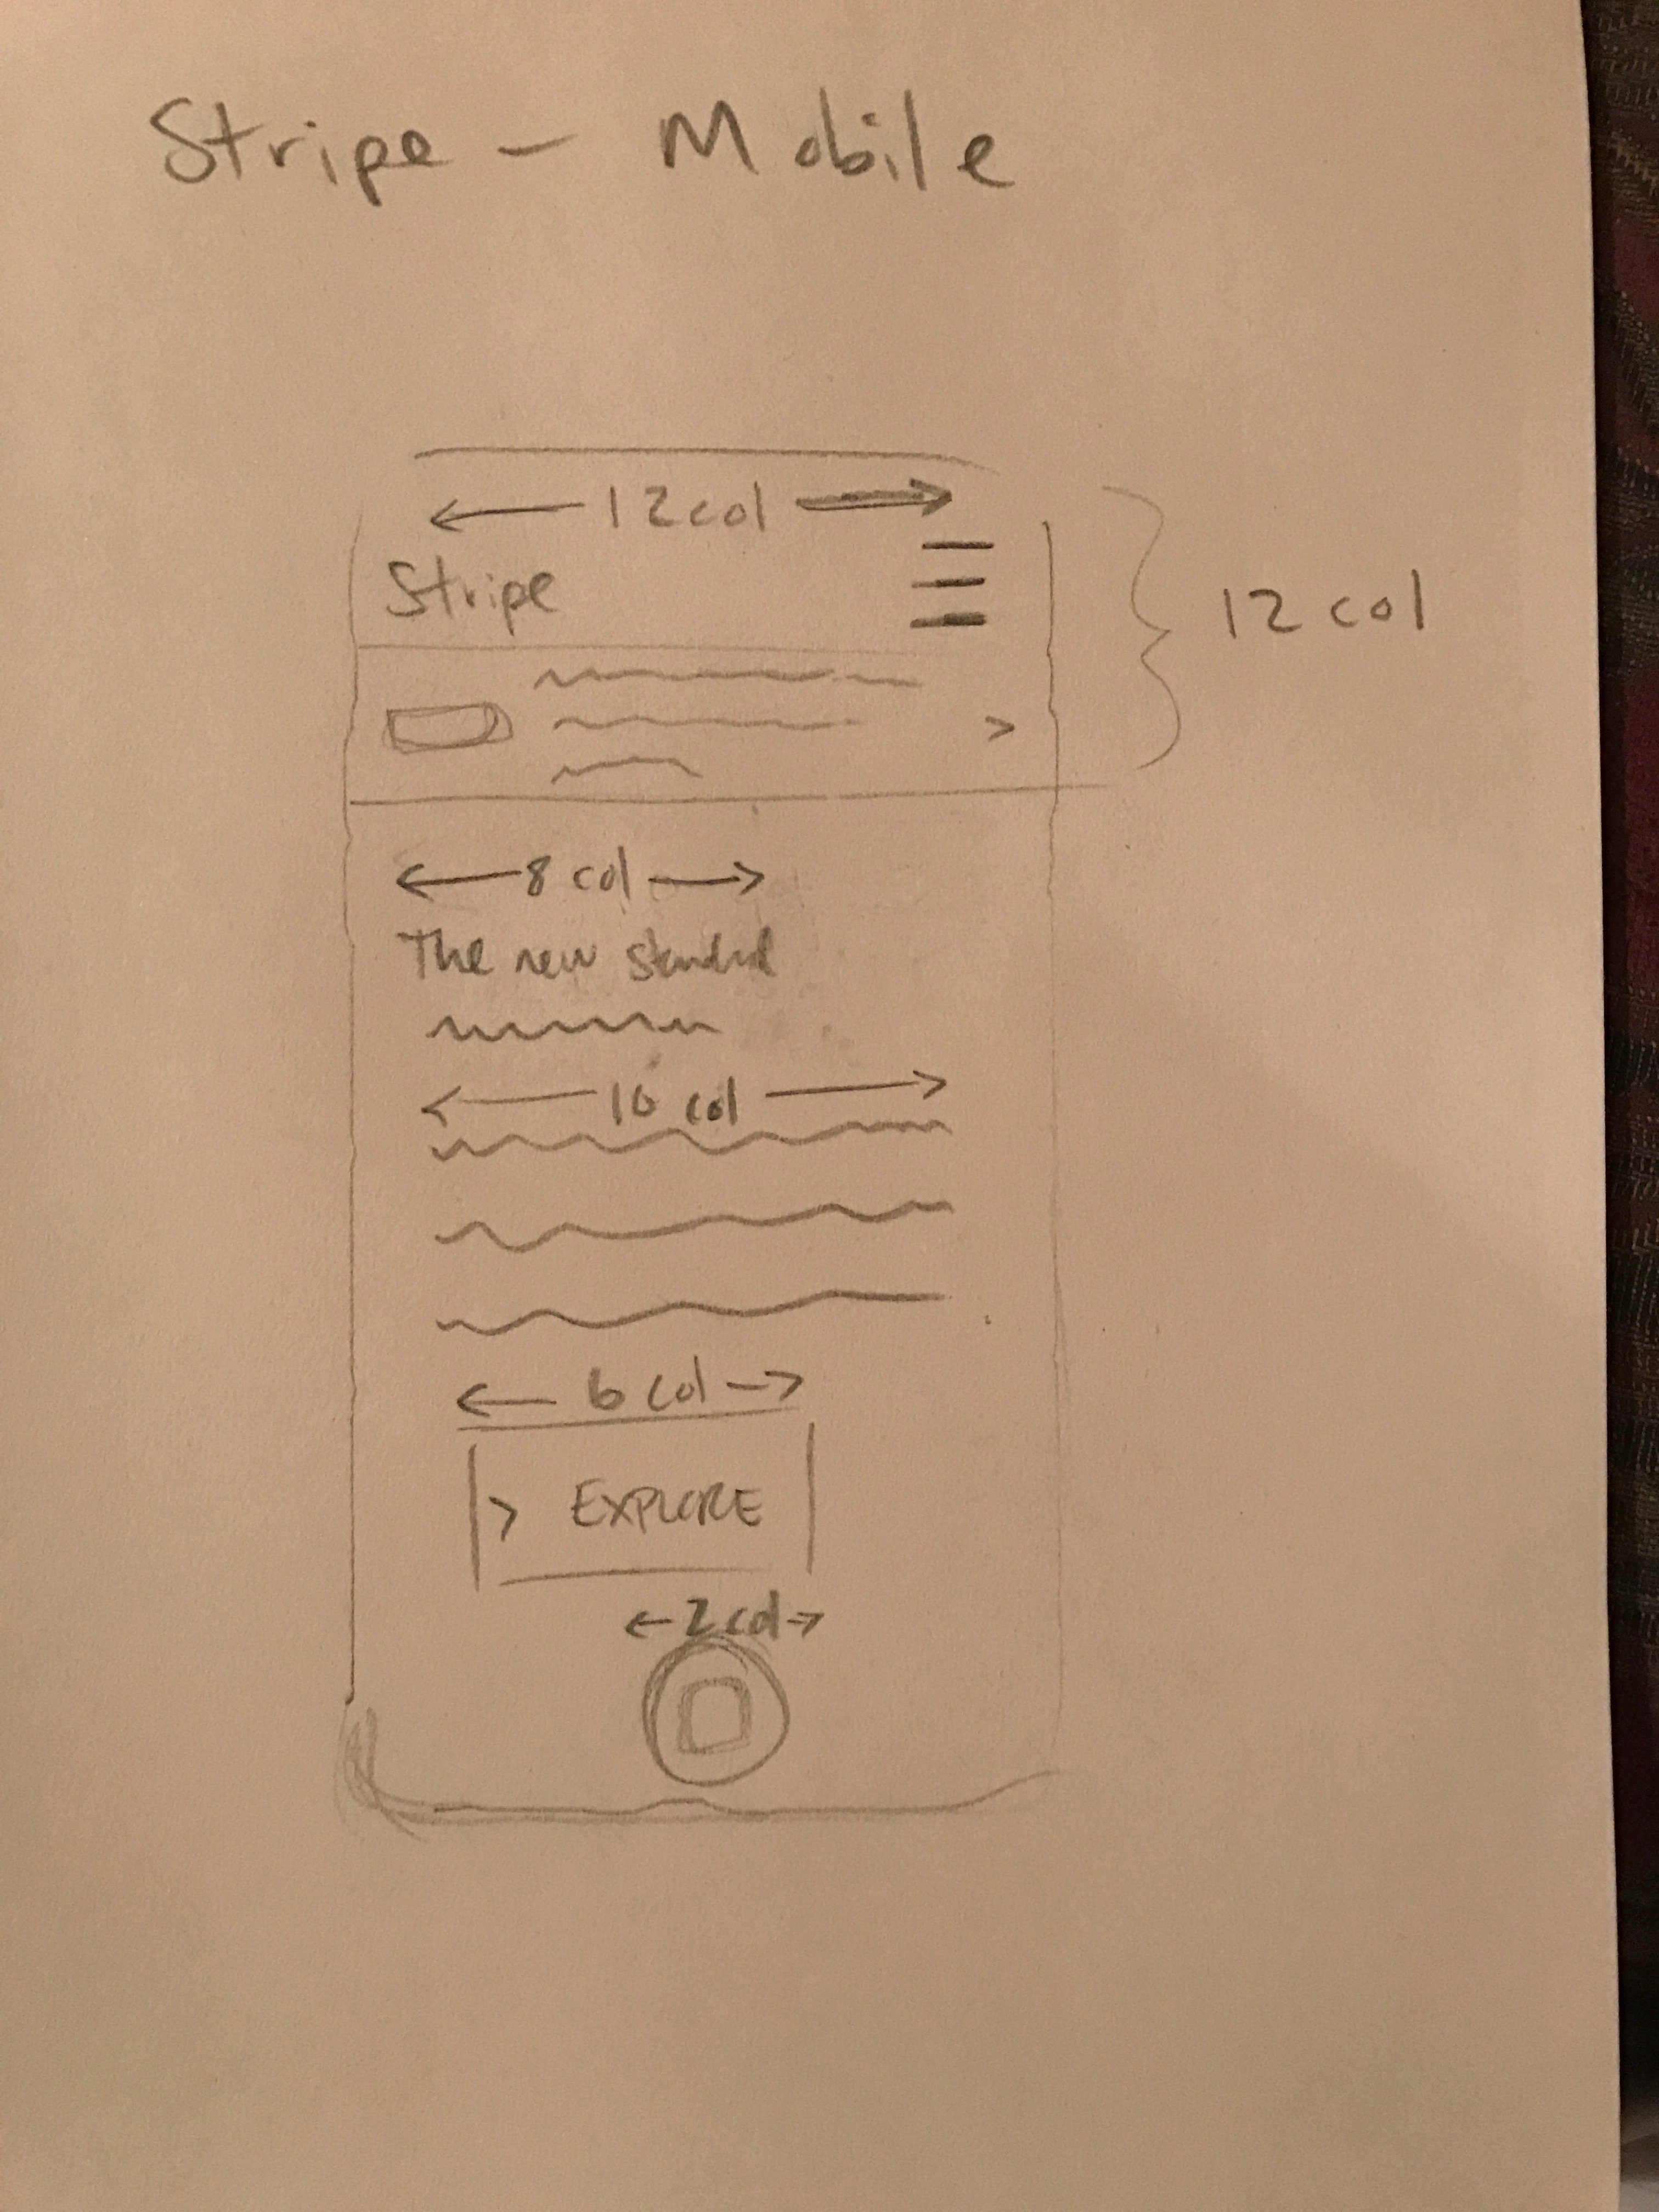 Stripe - Mobile
12 col
Stripe
12 col
8 col
The new standard
10 col
6 col
> EXPLORE
2 col